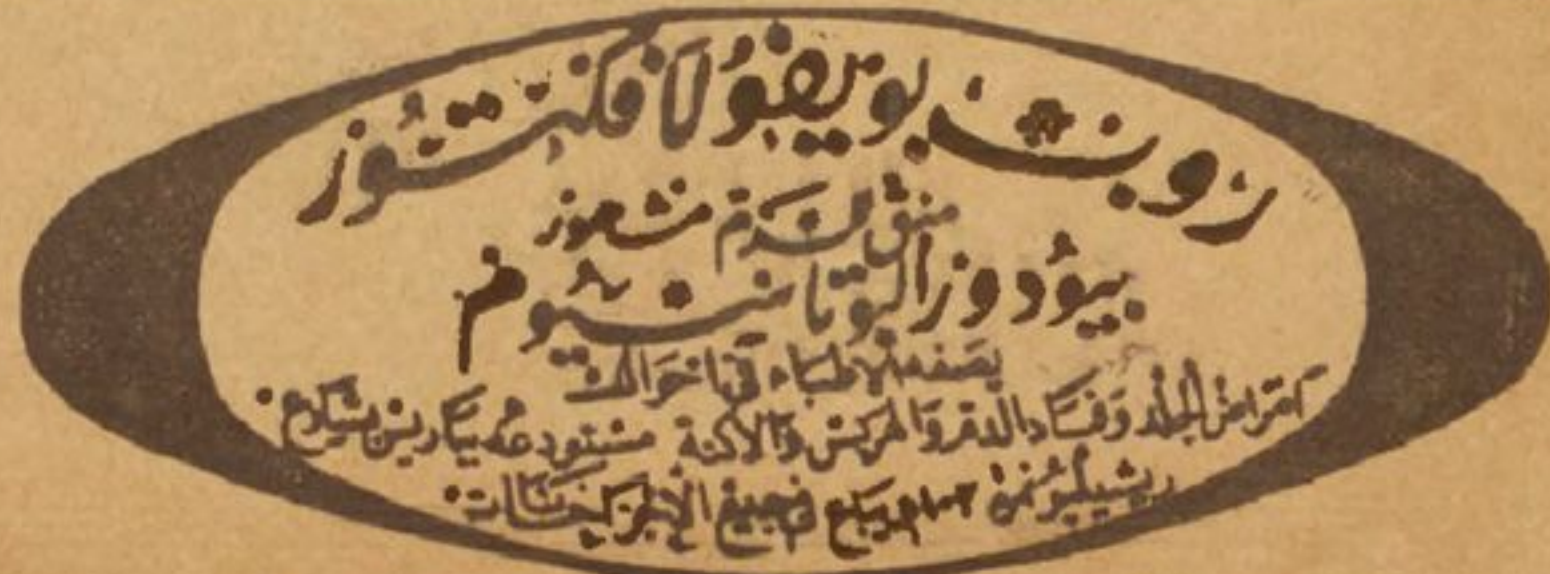 روب بويفولافكتور
منق للدم مشهور
بيودور البوتاسيوم
يصفه الاطباء في احوال
امراض الجلد وفساد الدم والاكنة مستودعه بباريس بشارع
ريشيليو نمرة ويباع في جميع الاجزاخانات